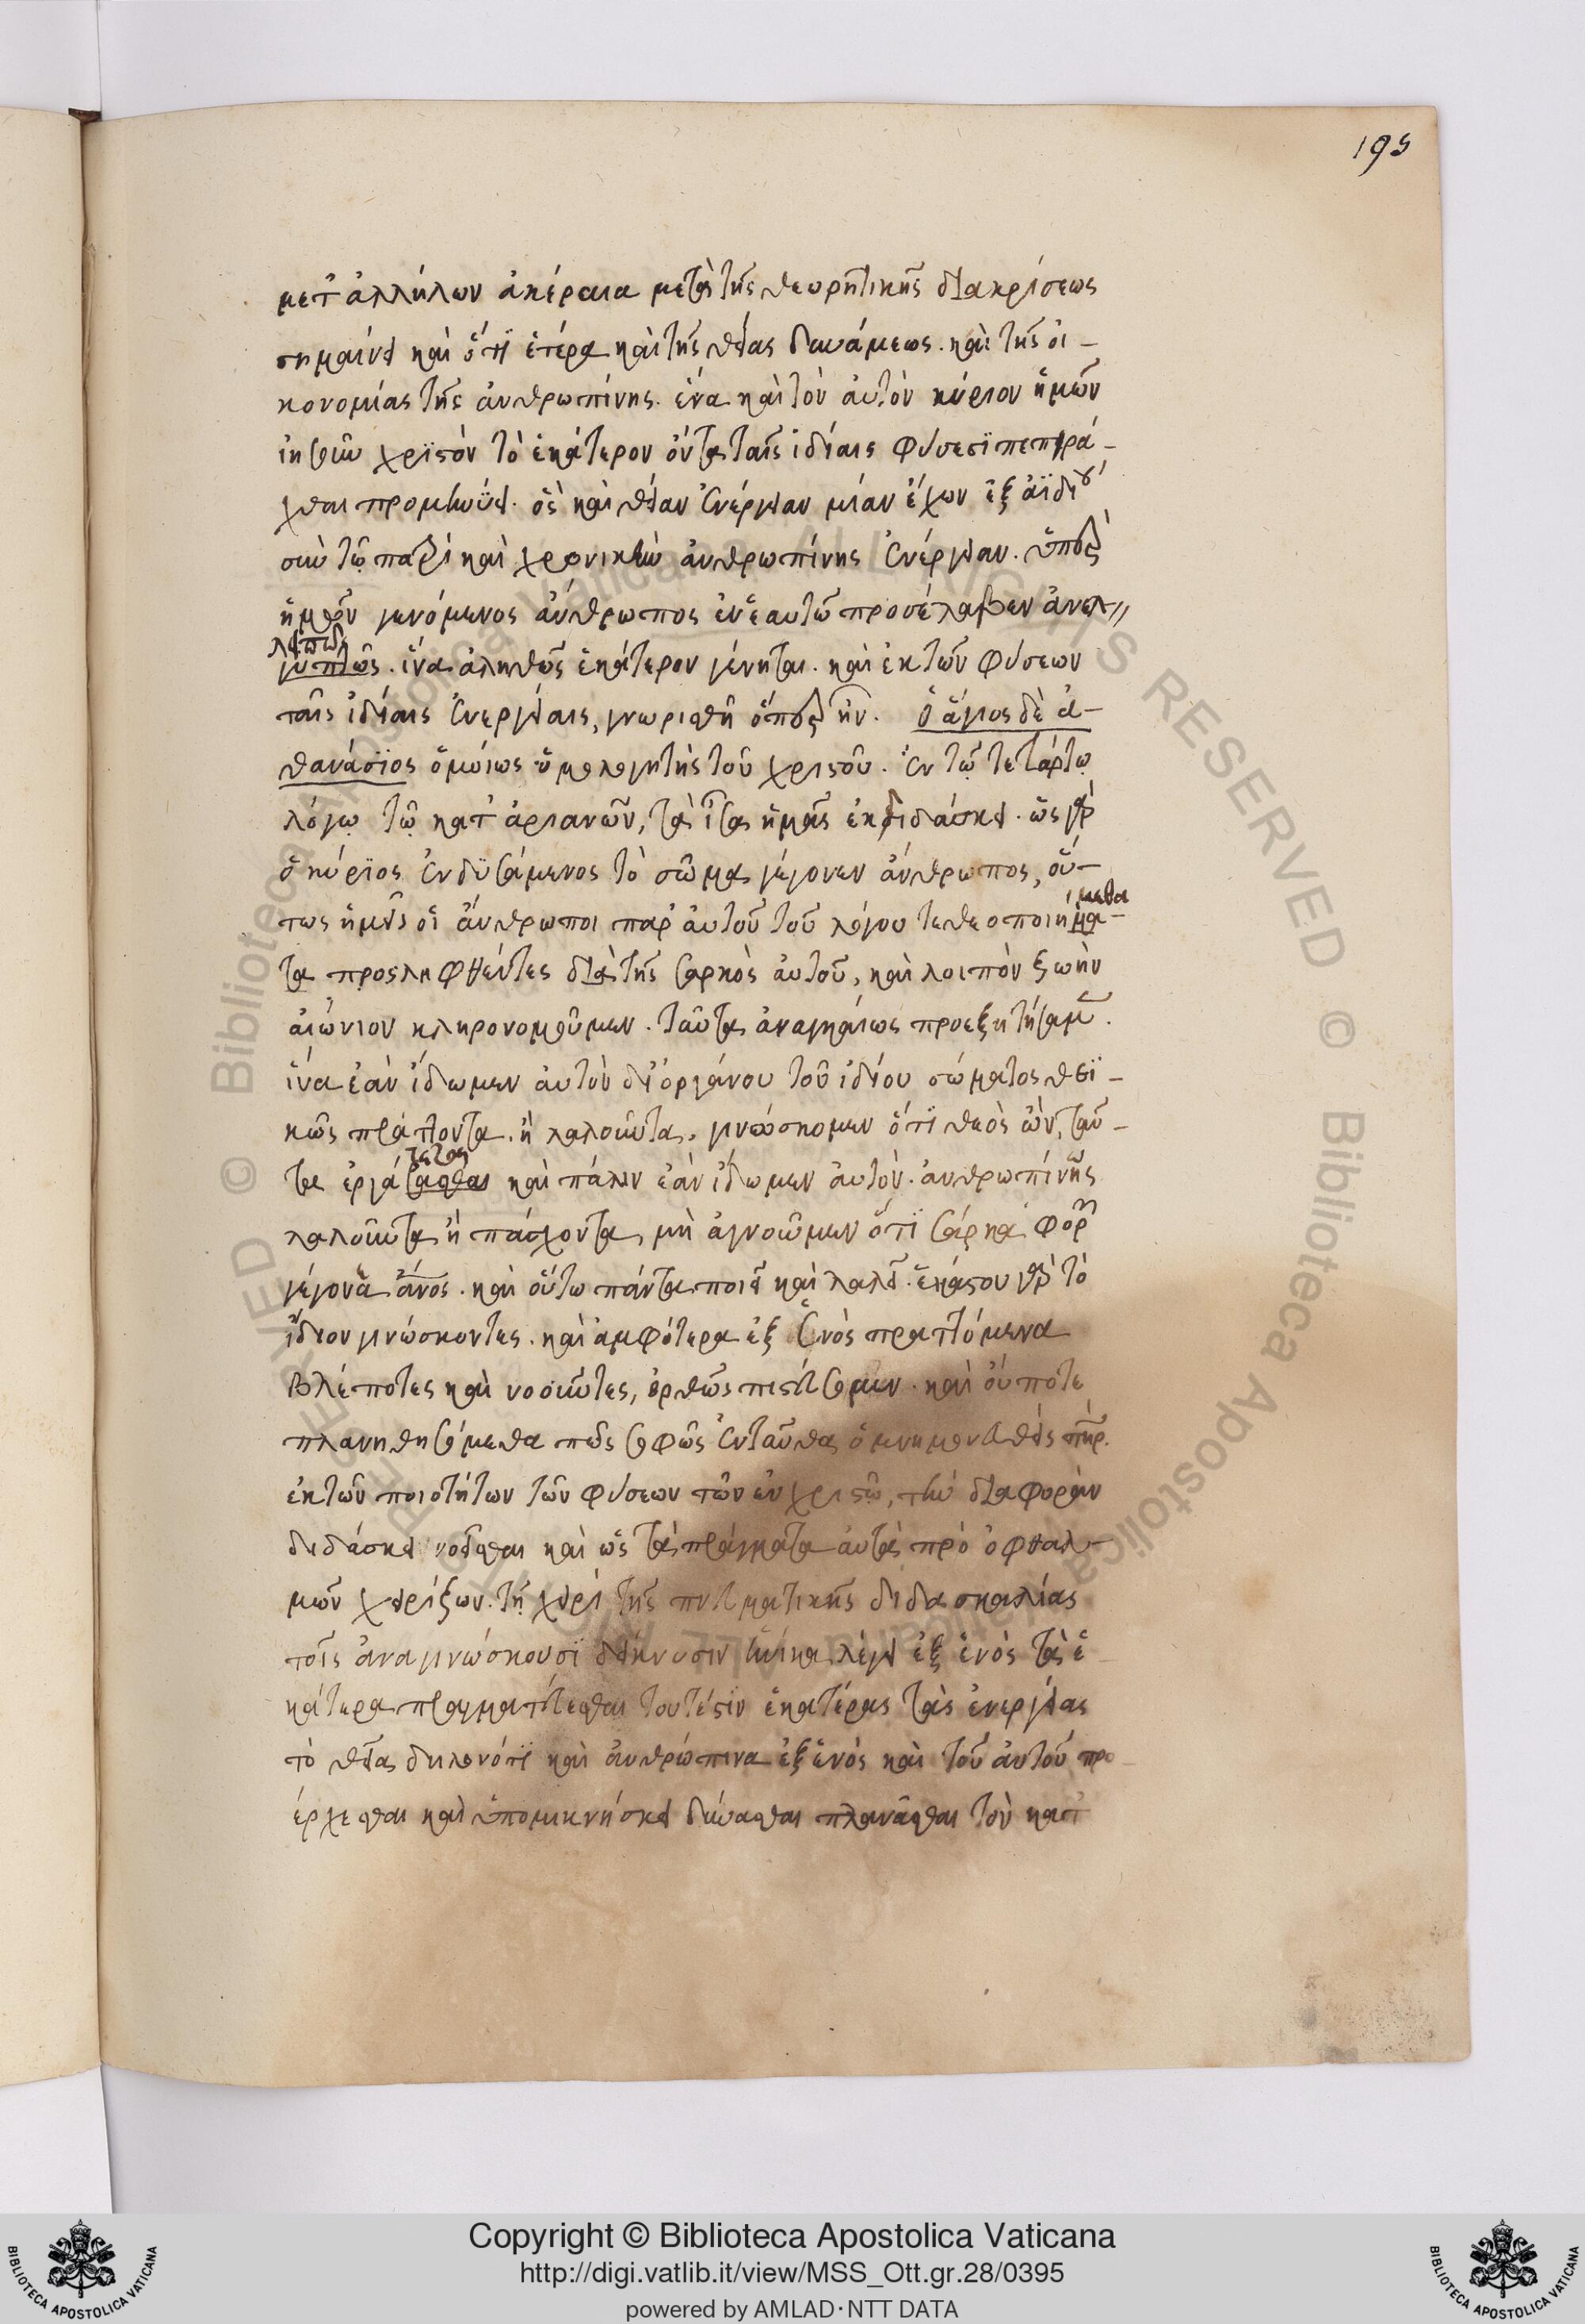 195
μετ' ἀλλήλων ἀκέραια μετὰ τῆς θεωρητικῆς διακρίσεως
σημαίνει καὶ ὅτι ἑτέρα καὶ τῆς θείας δυνάμεως. καὶ τῆς οἰ-
κονομίας τῆς ἀνθρωπίνης. ἕνα καὶ τὸν αὐτὸν κύριον ἡμῶν
ἰησοῦν χριστὸν τὸ ἑκάτερον ὄντα ταῖς ἰδίαις φύσεσι πεπρά-
χθαι προμηνύει. ὃς καὶ θείαν ἐνέργειαν μίαν ἔχων ἐξ ἀϊδίου
σὺν τῷ πατρὶ καὶ χρονικὴν ἀνθρωπίνης ἐνέργειαν.
ἡμῶν γενόμενος ἄνθρωπος ἐν ἑαυτῶ προσέλαβεν ἀνελ
λειπῶς
. ἵνα ἀληθῶς ἑκάτερον γένηται. καὶ ἐκ τῶν φύσεων
ταῖς ἰδίαις ἐνεργείαις, γνωρισθῆ ἦν. ὁ ἅγιος δὲ ἀ-
θανάσιος ὁμοίως ὁμολογητὴς τοῦ χριστοῦ. ἐν τῷ τετάρτῳ
λόγῳ τῷ κατ' ἀριανῶν, τὰ ἶσα ἡμᾶς ἐκδιδάσκει. ὡς γὰρ
ὁ κύριος ἐνδυσάμενος τὸ σῶμα γέγονεν ἄνθρωπος, οὕ-
μεθα
τως ἡμεῖς οἱ ἄνθρωποι παρ' αὐτοῦ τοῦ λόγου τεθεοποιήμα-
τα προσληφθέντες διὰ τῆς σαρκὸς αὐτοῦ, καὶ λοιπὸν ζωὴν
αἰώνιον κληρονομοῦμεν. ταῦτα ἀναγκαίως προεξητήσαμεν.
ἵνα ἐὰν ἴδωμεν αὐτὸν δι' ὀργάνου τοῦ ἰδίου σώματος θεϊ-
κῶς πράττοντα. ἢ λαλοῦντα. γινώσκομεν ὅτι θεὸς ὢν, ταῦ-
ζεται
τα ἐργάσασθαι καὶ πάλιν ἐὰν ἴδωμεν αὐτὸν. ἀνθρωπίνως
λαλοῦντα ἢ πάσχοντα, μὴ ἀγνοῶμεν ὅτι σάρκα φορῶν
γέγονεν ἄνος. καὶ οὕτω πάντα ποιεῖ καὶ λαλεῖ. ἑκάστου γὰρ τὸ
ἴδιον γινώσκοντες. καὶ ἀμφότερα ἐξ ἑνὸς πραττόμενα
βλέποτες καὶ νοοῦντες, ὀρθῶς πιστεύσομεν. καὶ οὔποτε
πλανηθησόμεθα πῶς σοφῶς ἐνταῦθα ὁ μνημονευθεὶς πηρ.
ἐκ τῶν ποιοτήτων τῶν φύσεων τῶν ἐν χριστῷ, τὴν διαφορὰν
διδάσκει νοεῖσθαι καὶ ὡς τὰ πράγματα αὐτὰ πρὸ ὀφθαλ-
μῶν χειρίζων. τῇ χειρὶ τῆς πνευματικῆς διδασκαλίας
τοῖς ἀναγινώσκουσι δείκνυσιν ἡνίκα λέγει ἐξ ἑνὸς τὰ ἑ-
κάτερα πραγματεύεσθαι τουτέστιν ἑκατέρας τὰς ἐνεργείας
τὸ θεῖα δηλονότι καὶ ἀνθρώπινα ἐξ ἑνὸς καὶ τοῦ αὐτοῦ προ-
έρχεσθαι καὶ ὑπομιμνήσκει δύνασθαι πλανᾶσθαι τὸν κατ'
Copyright © Biblioteca Apostolica Vaticana
http://digi.vatlib.it/view/MSS_Ott.gr.28/0395
powered by AMLAD·NTT DATA